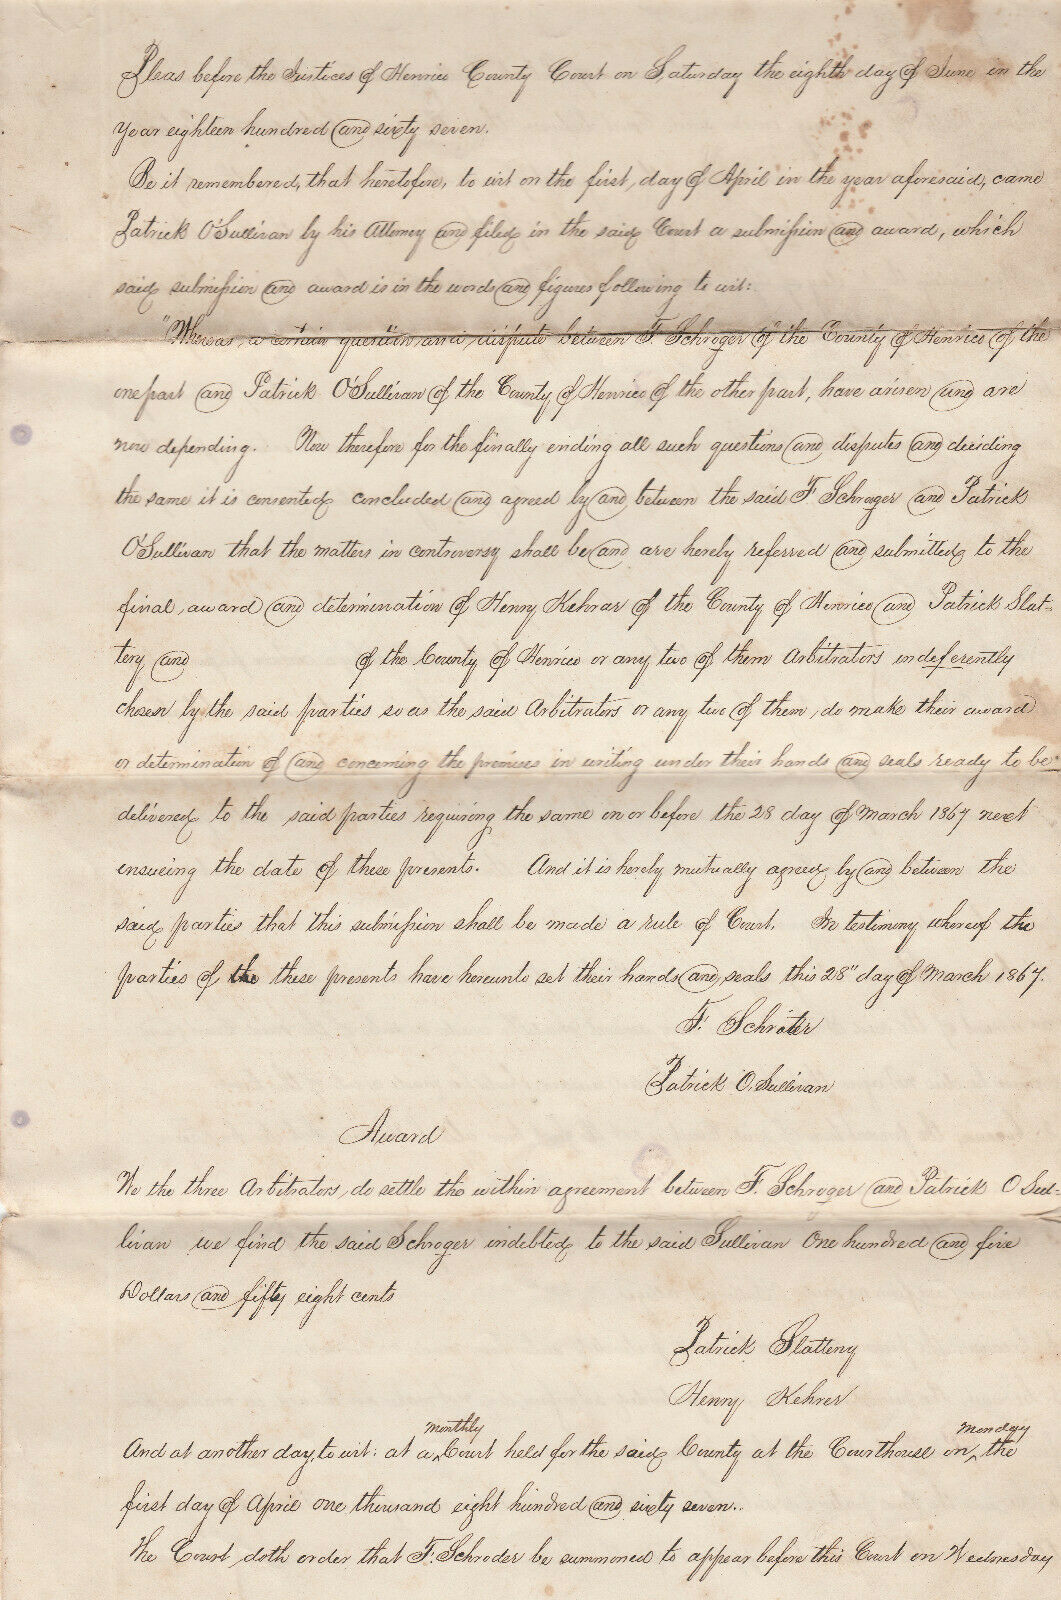 Pleas before the Justices of Henrico County Court on Saturday the eighth day of June in the
year eighteen hundred and sixty seven.
Be it remembered, that heretofore, to wit on the first, day of April in the year aforesaid, came
Patrick O'Sullivan by his Attorney and filed in the said Court a submission and award, which
said submission and award is in the words and figures following to wit:
"Whereas, a certain question and dispute between F. Schroger of the County of Henrico of the
one part and Patrick O'Sullivan of the County of Henrico of the other part, have arisen and are
now depending. Now therefore for the finally ending all such questions and disputes and deciding
the same it is consented concluded and agreed by and between the said F Schroger and Patrick
O'Sullivan that the matters in controversy shall be and are hereby referred and submitted to the
final, award and determination of Henry Kehrar of the County of Henrico and Patrick Slat-
tery and of the County of Henrico or any two of them Arbitrators indeferently
chosen by the said parties so as the said Arbitrators or any two of them, do make their award
or determination of and concerning the premises in writing under their hands and seals ready to be
delivered to the said parties requiring the same on or before the 28 day of March 1867 next
ensueing the date of these presents. And it is hereby mutually agreed by and between the
said parties that this submission shall be made a rule of Court. In testimony whereof the
parties of the these presents have hereunto set their hands and seals this 28" day of March 1867.
F. Schröter
Patrick O. Sullivan
Award
We the three Arbitrators, do settle the within agreement between F. Schroger and Patrick O Sul-
livan we find the said Schroger indebted to the said Sullivan One hundred and five
Dollars and fifty eight cents
Patrick Slatteny
Henry Kehrer
monthly Monday
And at another day, to wit: at a Court held for the said County at the Courthouse on the
first day of April one thousand eight hundred and sixty seven..
The Court, doth order that F. Schroder be summoned to appear before this Court on Wednesday